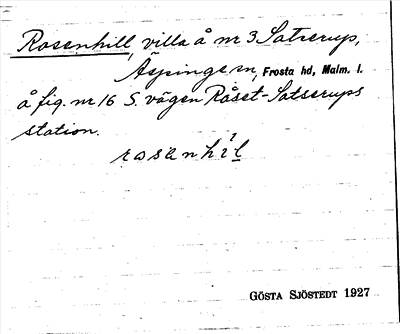 Rosenhill, villa å nr 3 Satserup,
Äspinge sn, Frosta hd, Malm. l.
å fig. nr 16 S. vägen Råset-Satserups
station.
rosenhil
GÖSTA SJÖSTEDT 1927